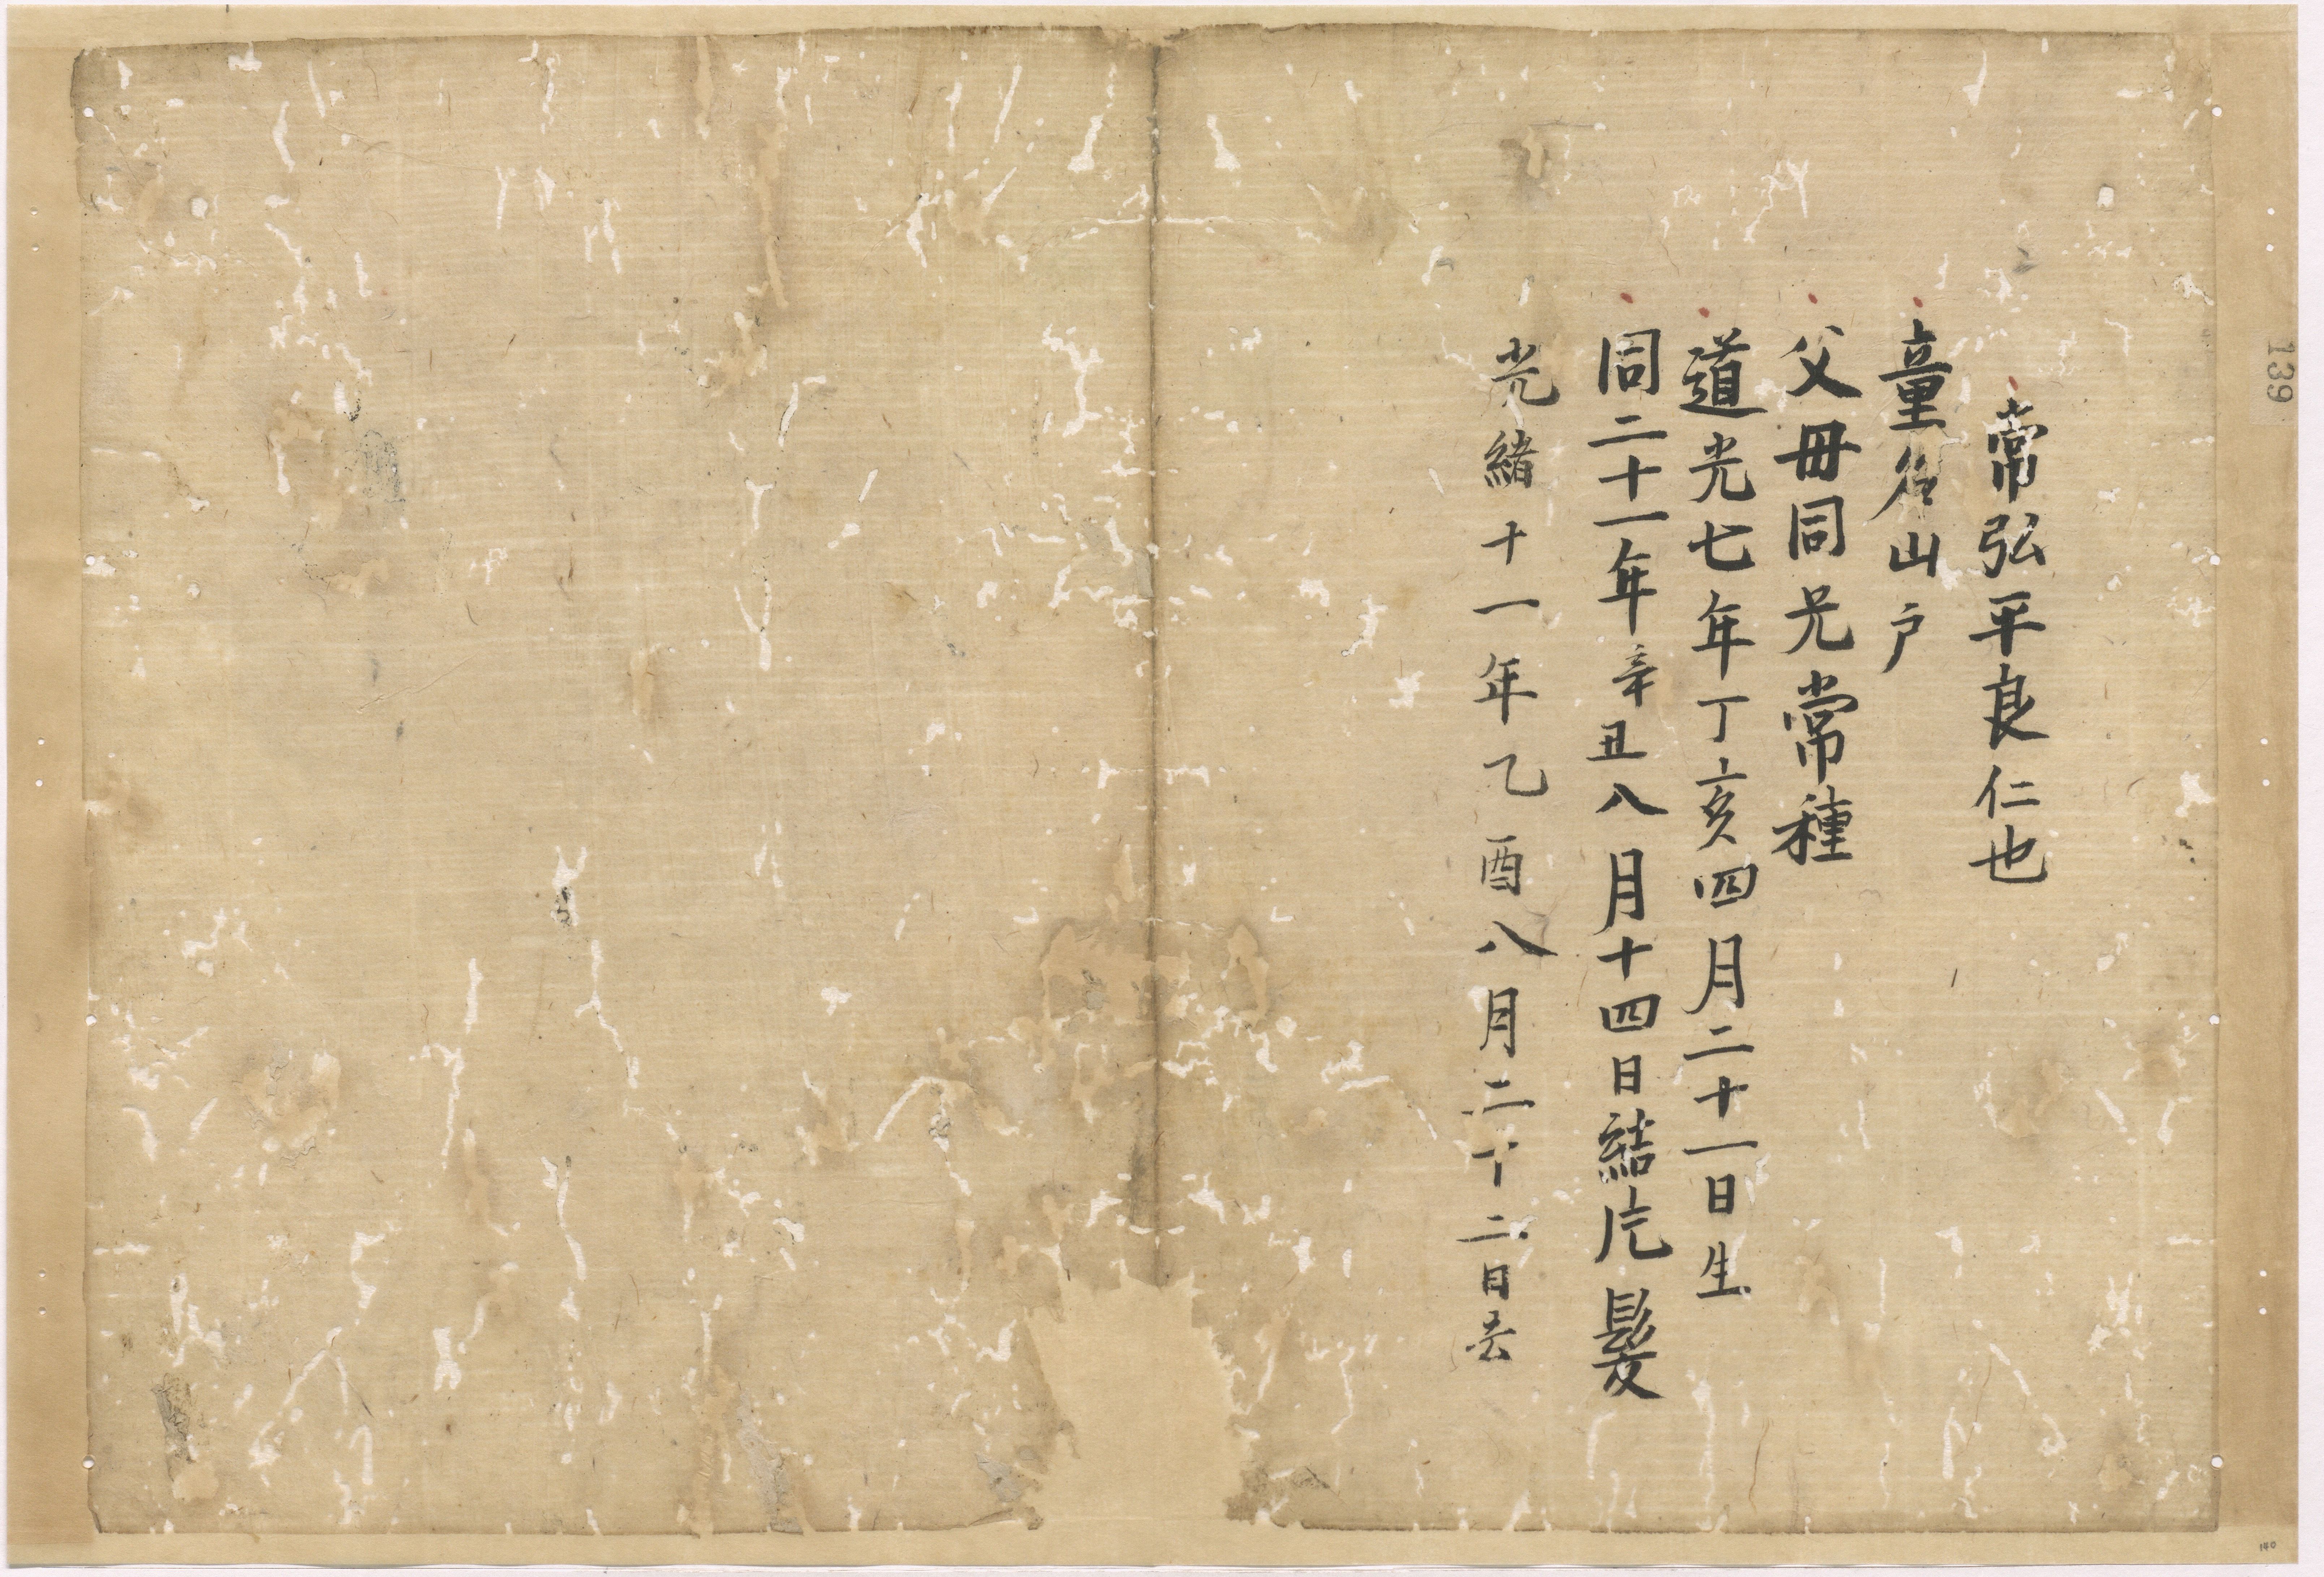 常弘平良仁也
童名山戶
父母同兄常種
道光七年丁亥四月二十一日生
同二十一年辛丑八月十四日結片髮
光緒十一年乙酉八月二十二日去
139
140